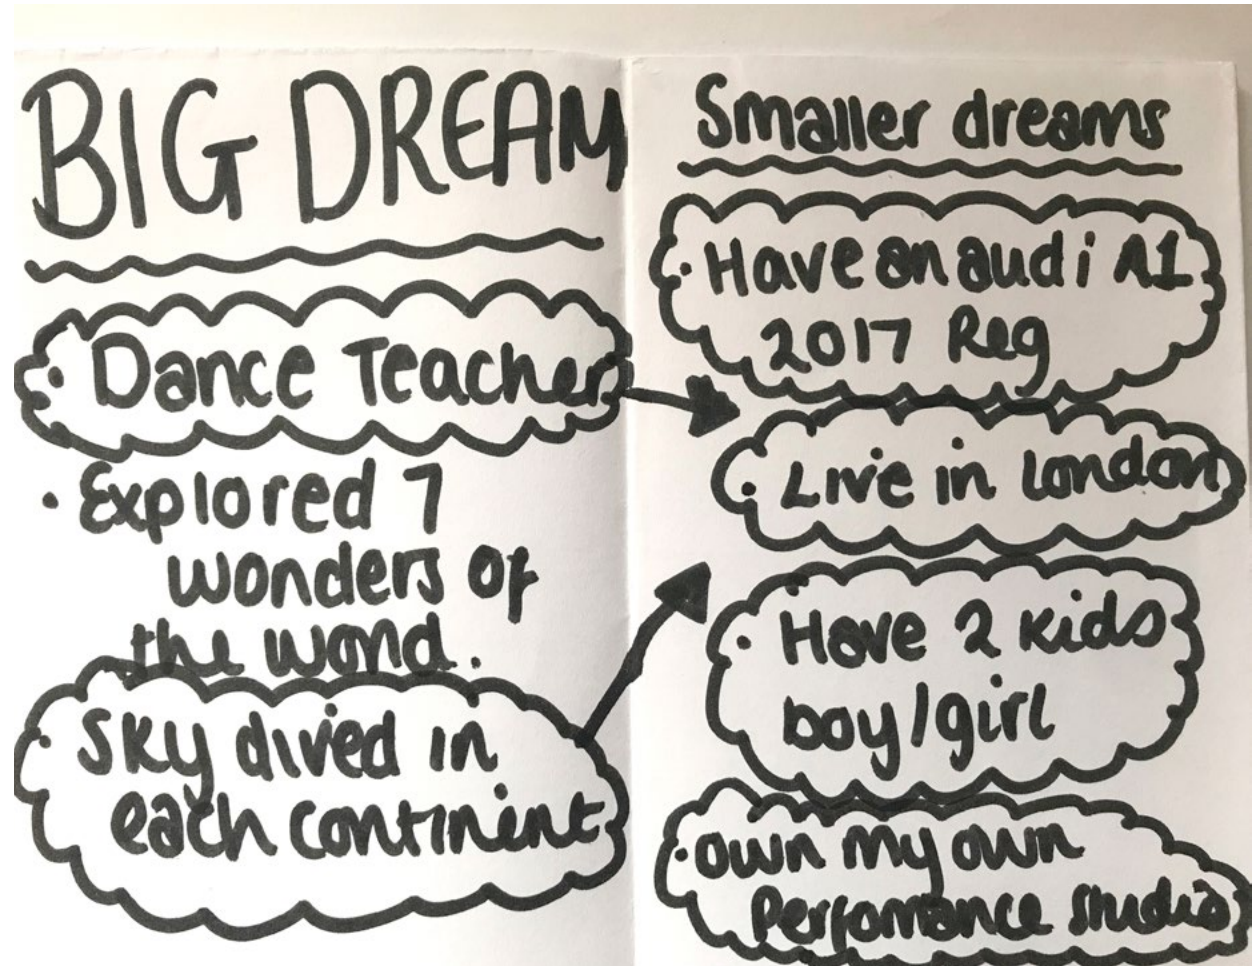 BIG DREAM
· Dance Teacher
· Explored 7
wonders of
the world.
· Sky dived in
each continent
Smaller dreams
· Have an audi A1
2017 Reg
· Live in london
· Have 2 kids
boy/girl
· own my own
Perfomance studio